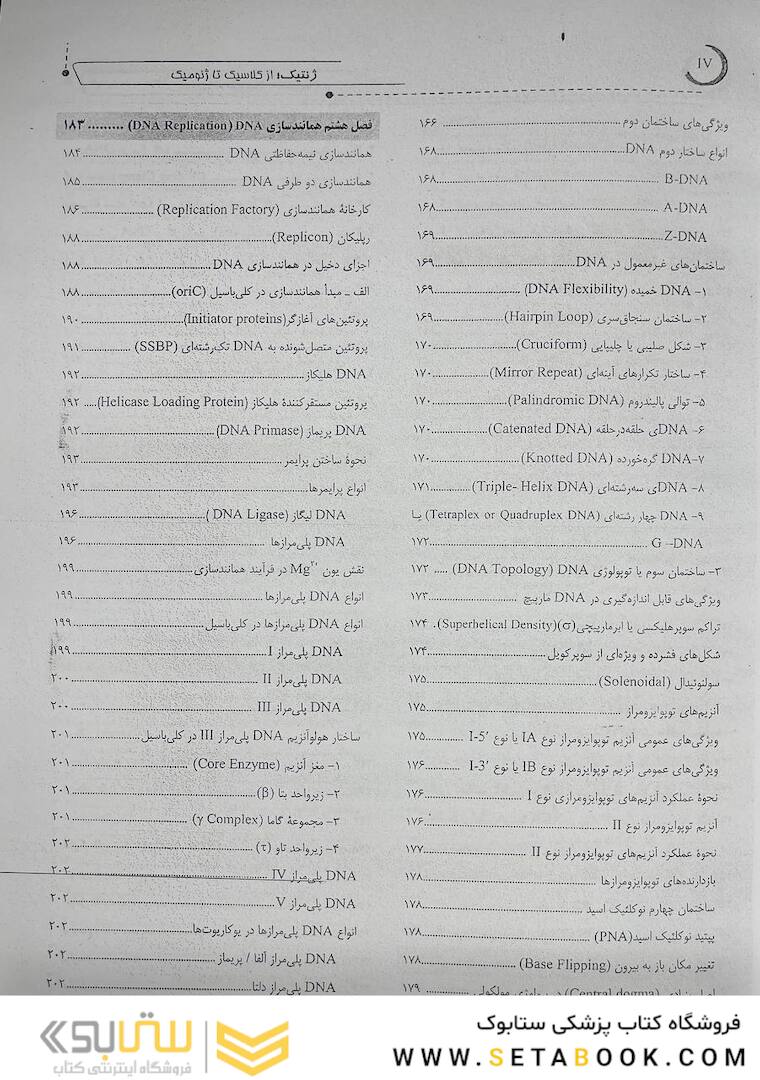 IV
ژنتیک؛ از کلاسیک تا ژنومیک
ویژگی‌های ساختمان دوم ۱۶۶
انواع ساختار دوم DNA ۱۶۸
B-DNA ۱۶۸
A-DNA ۱۶۸
Z-DNA ۱۶۹
ساختمان‌های غیرمعمول در DNA ۱۶۹
۱- DNA خمیده (DNA Flexibility) ۱۶۹
۲- ساختمان سنجاق‌سری (Hairpin Loop) ۱۶۹
۳- شکل صلیبی یا چلیپایی (Cruciform) ۱۷۰
۴- ساختار تکرارهای آینه‌ای (Mirror Repeat) ۱۷۰
۵- توالی پالیندروم (Palindromic DNA) ۱۷۰
۶- DNAی حلقه‌درحلقه (Catenated DNA) ۱۷۰
۷-DNA گره‌خورده (Knotted DNA) ۱۷۰
۸- DNAی سه‌رشته‌ای (Triple- Helix DNA) ۱۷۱
۹- DNA چهار رشته‌ای (Tetraplex or Quadruplex DNA) یا
G –DNA ۱۷۲
۳- ساختمان سوم یا توپولوژی DNA (DNA Topology) ۱۷۲
ویژگی‌های قابل اندازه‌گیری در DNA مارپیچ ۱۷۳
تراکم سوپرهلیکسی یا ابرمارپیچی(σ)(Superhelical Density). ۱۷۴
شکل‌های فشرده و ویژه‌ای از سوپرکویل ۱۷۴
سولنوئیدال (Solenoidal) ۱۷۵
آنزیم‌های توپوایزومراز ۱۷۵
ویژگی‌های عمومی آنزیم توپوایزومراز نوع IA یا نوع I-5′ ۱۷۵
ویژگی‌های عمومی آنزیم توپوایزومراز نوع IB یا نوع I-3′ ۱۷۶
نحوهٔ عملکرد آنزیم‌های توپوایزومرازی نوع I ۱۷۶
آنزیم توپوایزومراز نوع II ۱۷۶
نحوهٔ عملکرد آنزیم‌های توپوایزومراز نوع II ۱۷۷
بازدارنده‌های توپوایزومرازها ۱۷۸
ساختمان چهارم نوکلئیک اسید ۱۷۸
پپتید نوکلئیک اسید(PNA) ۱۷۸
تغییر مکان باز به بیرون (Base Flipping) ۱۷۸
(Central dogma) ۱۷۹
فصل هشتم همانندسازی DNA (DNA Replication) ۱۸۳
همانندسازی نیمه‌حفاظتی DNA ۱۸۴
همانندسازی دو طرفی DNA ۱۸۵
کارخانهٔ همانندسازی (Replication Factory) ۱۸۶
رپلیکان (Replicon) ۱۸۸
اجزای دخیل در همانندسازی DNA ۱۸۸
الف – مبدأ همانندسازی در کلی‌باسیل (oriC) ۱۸۸
پروتئین‌های آغازگر(Initiator proteins) ۱۹۰
پروتئین متصل‌شونده به DNA تک‌رشته‌ای (SSBP) ۱۹۱
DNA هلیکاز ۱۹۲
پروتئین مستقرکنندهٔ هلیکاز (Helicase Loading Protein) ۱۹۲
DNA پریماز (DNA Primase) ۱۹۲
نحوهٔ ساختن پرایمر ۱۹۳
انواع پرایمرها ۱۹۳
DNA لیگاز (DNA Ligase ) ۱۹۶
DNA پلی‌مرازها ۱۹۶
نقش یون Mg²⁺ در فرآیند همانندسازی ۱۹۹
انواع DNA پلی‌مرازها ۱۹۹
انواع DNA پلی‌مرازها در کلی‌باسیل ۱۹۹
DNA پلی‌مراز I ۱۹۹
DNA پلی‌مراز II ۲۰۰
DNA پلی‌مراز III ۲۰۰
ساختار هولوآنزیم DNA پلی‌مراز III در کلی‌باسیل ۲۰۱
۱- مغز آنزیم (Core Enzyme) ۲۰۱
۲- زیرواحد بتا (β) ۲۰۱
۳- مجموعهٔ گاما (γ Complex) ۲۰۱
۴- زیرواحد تاو (τ) ۲۰۲
DNA پلی‌مراز IV ۲۰۲
DNA پلی‌مراز V ۲۰۲
انواع DNA پلی‌مرازها در یوکاریوت‌ها ۲۰۲
DNA پلی‌مراز آلفا / پریماز ۲۰۲
DNA پلی‌مراز دلتا ۲۰۲
فروشگاه کتاب پزشکی ستابوک
WWW.SETABOOK.COM
ستابوک
فروشگاه اینترنتی کتاب